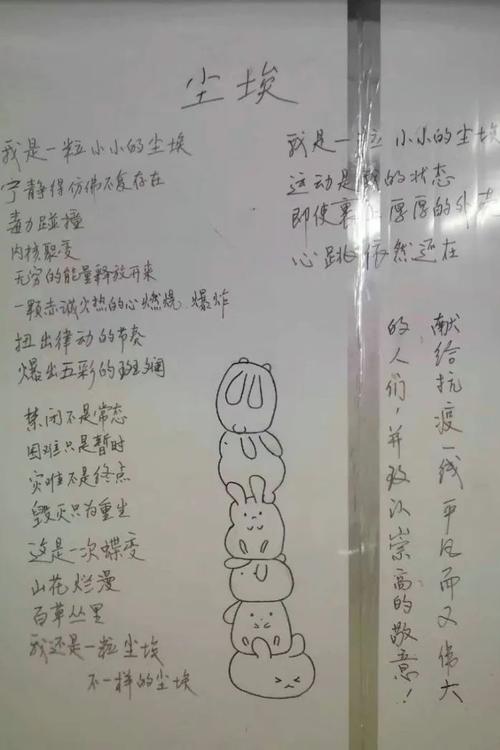 尘埃
我是一粒小小的尘埃
宁静得仿佛不复存在
碰撞
内核裂变
无穷的能量释放开来
一颗赤诚火热的心燃烧 爆炸
扭出律动的节奏
爆出五彩的斑斓
禁闭不是常态
困难只是暂时
灾难不是终点
毁灭只为重生
这是一次蝶变
山花烂漫
百草丛里
我还是一粒尘埃
不一样的尘埃
我是一粒小小的尘埃
运动是我的状态
即使裹上厚厚的外
心跳依然还在
献给抗疫一线平凡而又伟大
的人们，并致以崇高的敬意！